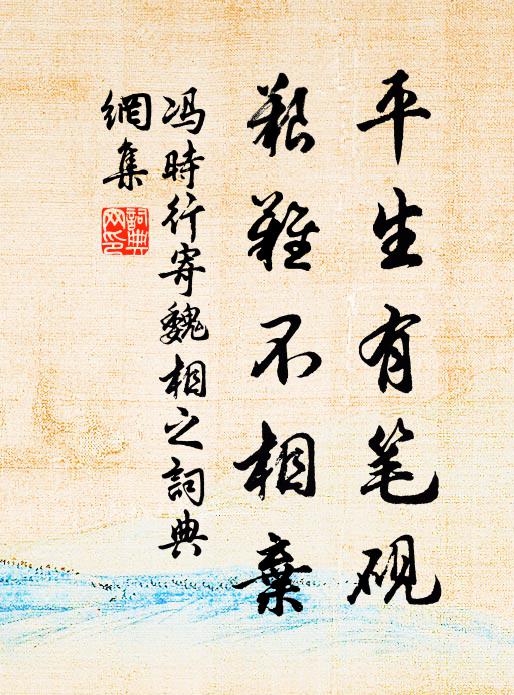 平生有笔砚
艱難不相棄
冯時行寄魏相之詞典
網集
詞典
网印